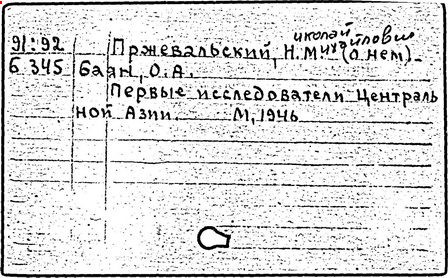 91:92 Пржевальский, Николай Михайлович (о нем).
Б 345 Баян, О.А.
Первые исследователи Централь
ной Азии. М, 1946